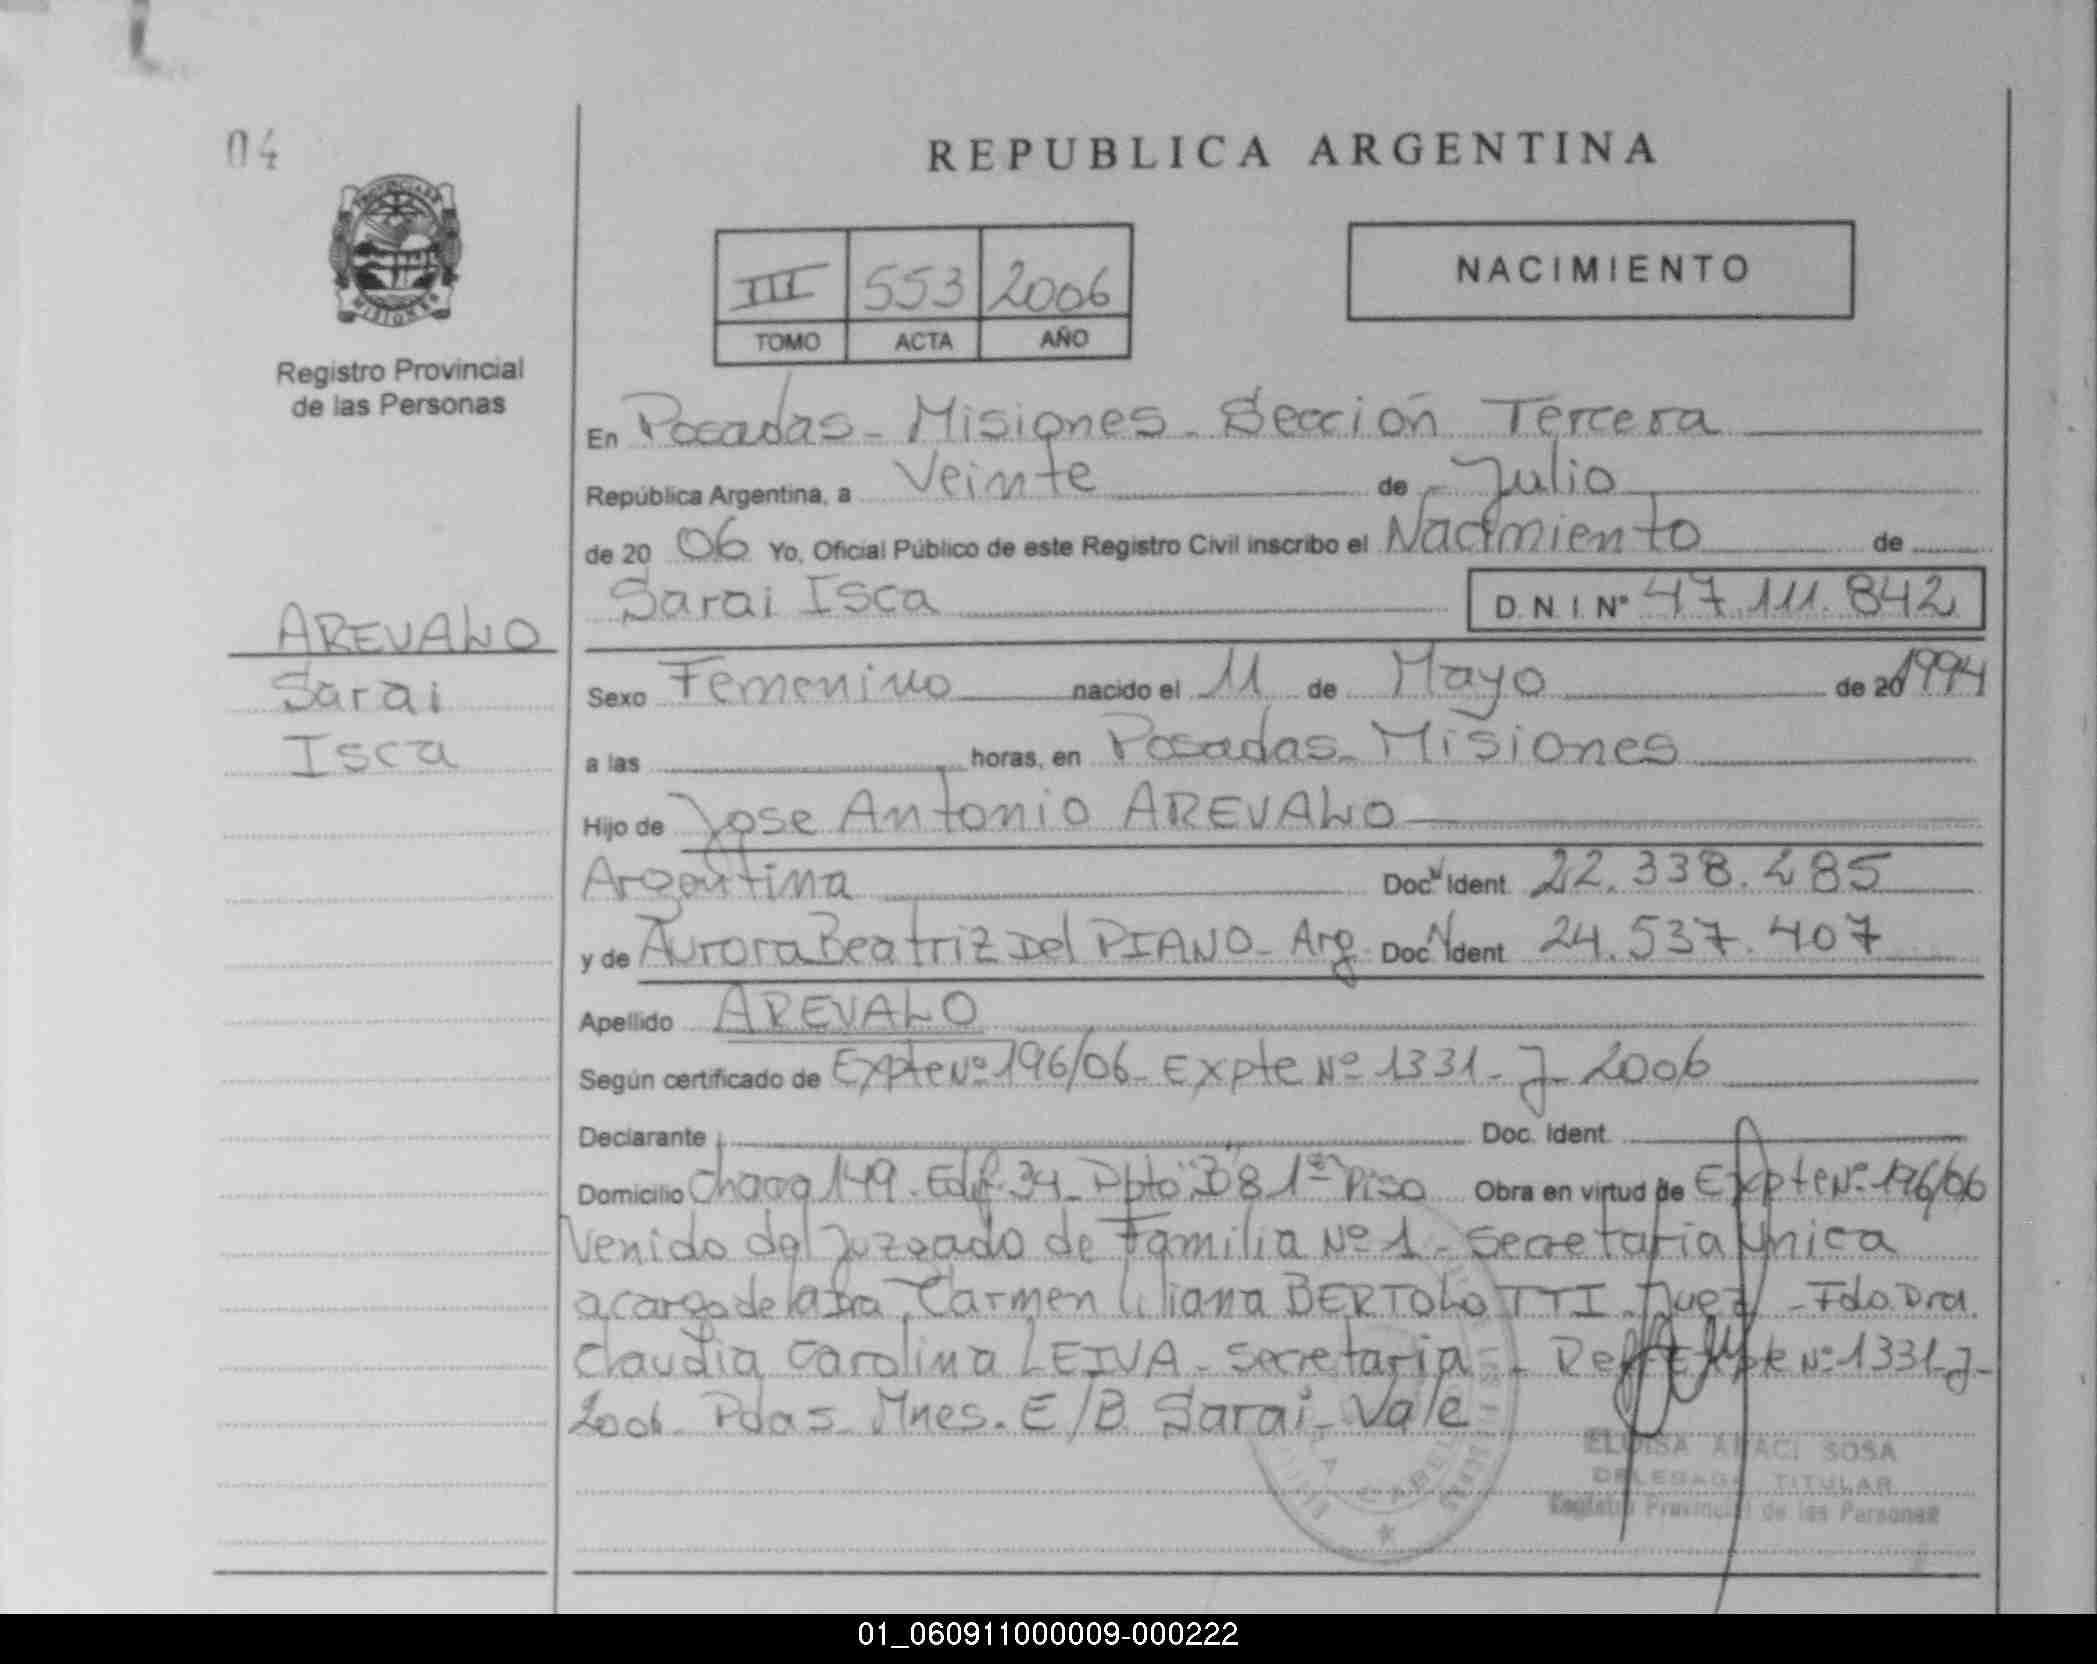 04
REPUBLICA ARGENTINA
III 553 2006
TOMO ACTA AÑO
NACIMIENTO
Registro Provincial
de las Personas
En Posadas - Misiones - Sección Tercera
República Argentina, a Veinte de Julio
de 20 06 Yo, Oficial Público de este Registro Civil inscribo el Nacimiento de
Sarai Isca D.N.I. Nº 47.111.842
AREVALO
Sarai
Isca
Sexo Femenino nacido el 11 de Mayo de 20 1994
a las horas, en Posadas - Misiones
Hijo de Jose Antonio AREVALO
Argentina Doc. Ident 22.338.485
y de Aurora Beatriz Del PIANO - Arg. Doc Ident 24.537.407
Apellido AREVALO
Según certificado de Expte Nº 196/06 - Expte Nº 1331 - J - 2006
Declarante Doc. Ident.
Domicilio Chacra 149 - Edif. 34 - Dpto "B" 8 1er Piso Obra en virtud de Expte Nº 196/06
Venido del Juzgado de Familia Nº 1 - Secretaria Unica
a cargo de la Dra. Carmen Liliana BERTOLOTTI - Juez - Fdo. Dra.
Claudia Carolina LEIVA - Secretaria - Ref. Expte Nº 1331 - J -
2006 - Pdas - Mnes. E/B. Sarai - Vale
ELOISA ARACI SOSA
DELEGADA TITULAR
Registro Provincial de las Personas
01_060911000009-000222